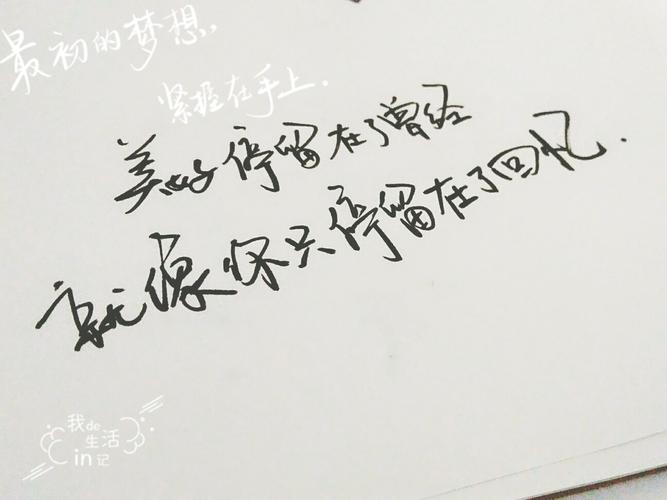 最初的梦想,
紧握在手上.
美好停留在了曾经
就像你只停留在了回忆.
我de
生活
in记